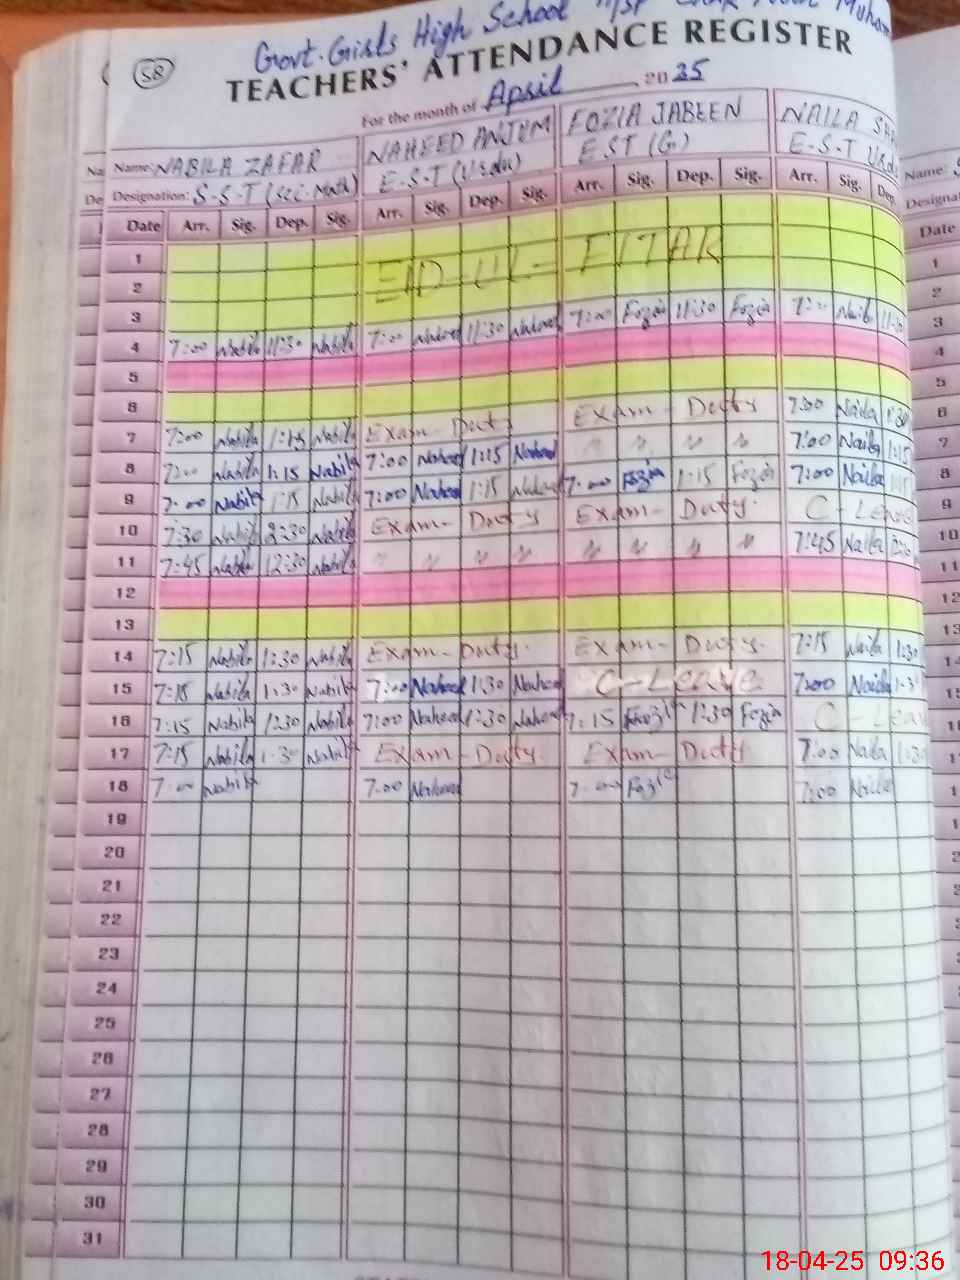 58
Govt. Girls High School
TEACHERS' ATTENDANCE REGISTER
For the month of April 2025
Name: NABILA ZAFAR NAHEED ANJUM FOZIA JABEEN NAILA
Designation: S.S.T (Sci-Math) E.S.T (Urdu) EST (G) E.S.T
Date Arr. Sig. Dep. Sig. Arr. Sig. Dep. Sig. Arr. Sig. Dep. Sig. Arr. Sig. Dep.
1
2 EID-UL-FITAR
3
4 7:00 Nabila 11:30 Nabila 7:00 Naheed 11:30 Naheed 7:00 Fozia 11:30 Fozia 7:00 Naila
5
6
7 7:00 Nabila 1:15 Nabila Exam-Duty Exam-Duty 7:00 Naila
8 7:00 Nabila 1:15 Nabila 7:00 Naheed 1:15 Naheed " " " " 7:00 Naila 1:15
9 7:00 Nabila 1:15 Nabila 7:00 Naheed 1:15 Naheed 7:00 Fozia 1:15 Fozia 7:00 Naila
10 7:30 Nabila 2:30 Nabila Exam-Duty Exam-Duty. C-Leave
11 7:45 Nabila 12:30 Nabila " " " " " " " " 7:45 Naila
12
13
14 7:15 Nabila 1:30 Nabila Exam-Duty. Exam-Duty. 7:15 Naila 1:30
15 7:15 Nabila 1:30 Nabila 7:00 Naheed 1:30 Naheed C-Leave 7:00 Naila
16 7:15 Nabila 12:30 Nabila 7:00 Naheed 12:30 Naheed 7:15 Fozia 12:30 Fozia C-Leave
17 7:15 Nabila 1:30 Nabila Exam-Duty. Exam-Duty. 7:00 Naila 1:30
18 7:00 Nabila 7:00 Naheed 7:00 Fozia 7:00 Naila
19
20
21
22
23
24
25
26
27
28
29
30
31
18-04-25 09:36